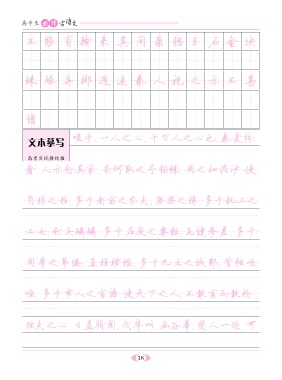 高中生必背古诗文
不能有输来其间鼎铛玉石金块
珠砾弃掷逦迤秦人视之亦不甚
惜
文本摹写
嗟乎!一人之心,千万人之心也。秦爱纷
奢,人亦念其家。奈何取之尽锱铢,用之如泥沙?使
负栋之柱,多于南亩之农夫;架梁之椽,多于机上之
工女;钉头磷磷,多于在庾之粟粒;瓦缝参差,多于
周身之帛缕;直栏横槛,多于九土之城郭;管弦呕
哑,多于市人之言语。使天下之人,不敢言而敢怒。
独夫之心,日益骄固。戍卒叫,函谷举,楚人一炬,可
18